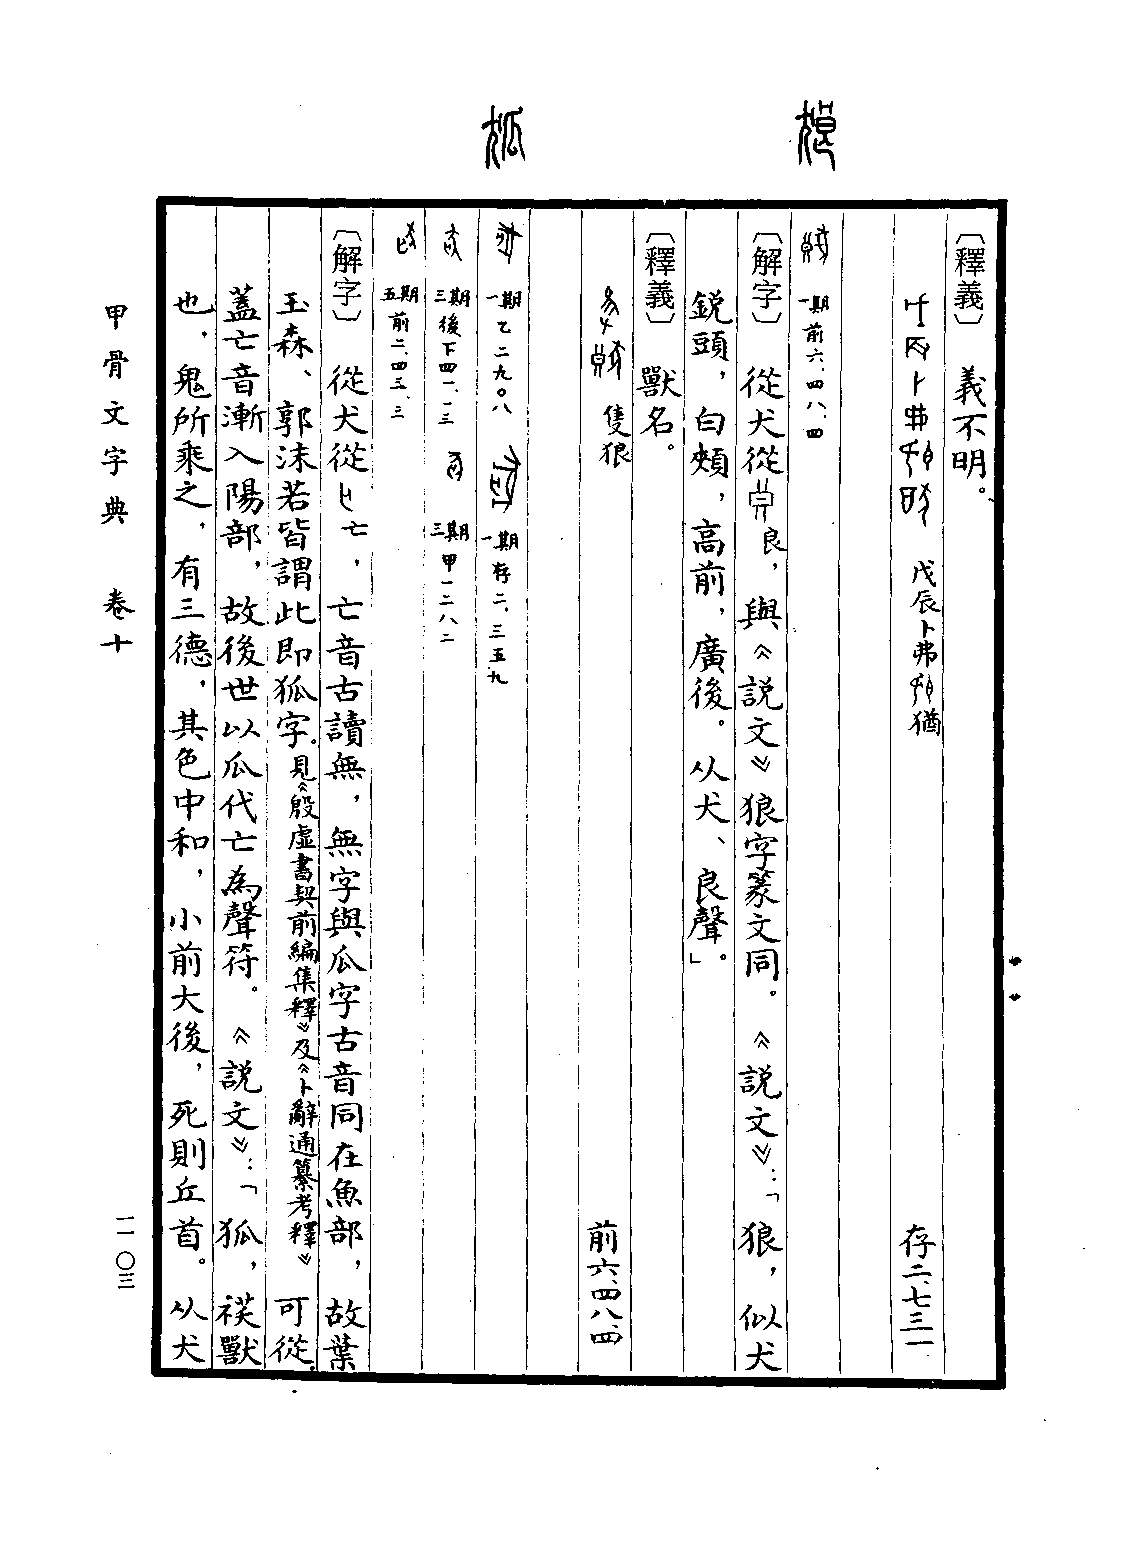 〔釋義〕 義不明。
戊辰卜弗 猶 存二、七三一
一期前六、四八、四
〔解字〕 從犬從良，與《説文》狼字篆文同。《説文》：「狼，似犬
鋭頭，白頰，高前，廣後。从犬、良聲」。
〔釋義〕 獸名。
隻狼 前六、四八、四
一期乙二九〇八 一期存二、三五九
三期後下四一、一三 三期甲一二八二
五期前二、四三、三
〔解字〕 從犬從亡，亡音古讀無，無字與瓜字古音同在魚部，故葉
玉森、郭沫若皆謂此即狐字。見《殷虛書契前編集釋》及《卜辭通纂考釋》可從。
蓋亡音漸入陽部，故後世以瓜代亡為聲符。《説文》：「狐，䄏獸
也，鬼所乘之，有三德，其色中和，小前大後，死則丘首。从犬
甲骨文字典 卷十
一一〇三